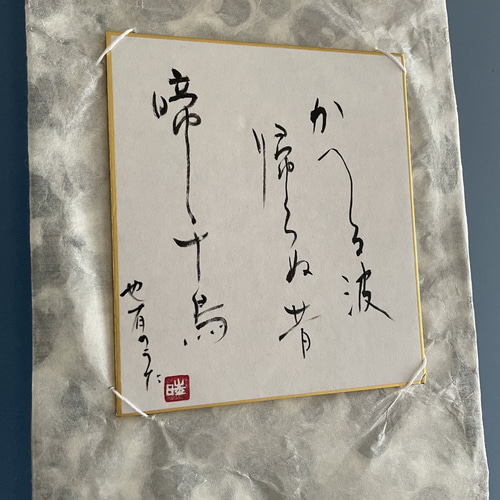 かへる波
帰らぬ昔
啼く千鳥
のうた
睦